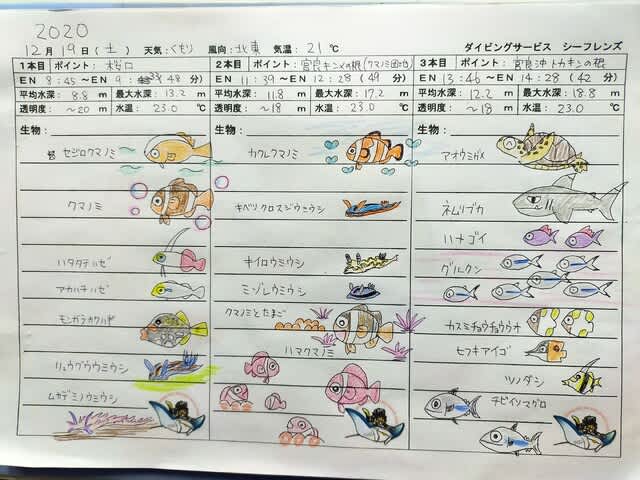 2020
12月19日(土) 天気:くもり 風向:北東 気温:21℃ ダイビングサービス シーフレンズ
1本目 ポイント:桜口
EN 8:45～EN 9:33 48分)
平均水深: 8.8 m 最大水深: 13.2 m
透明度: ～20 m 水温: 23.0 ℃
生物:
セジロクマノミ
クマノミ
ハタタテハゼ
アカハチハゼ
モンガラカワハギ
リュウグウウミウシ
ムカデミノウミウシ
2本目 ポイント:宮良キンメの根(クマノミ団地)
EN 11:39～EN 12:28 (49分)
平均水深: 11.8 m 最大水深: 17.2 m
透明度: ～18 m 水温: 23.0 ℃
生物:
カクレクマノミ
キベリクロスジウミウシ
キイロウミウシ
ミゾレウミウシ
クマノミとたまご
ハマクマノミ
3本目 ポイント:宮良沖トカキンの根
EN 13:46～EN 14:28 (42分)
平均水深: 12.2 m 最大水深: 18.8 m
透明度: ～18 m 水温: 23.0 ℃
生物:
アオウミガメ
ネムリブカ
ハナゴイ
グルクン
カスミチョウチョウウオ
ヒフキアイゴ
ツノダシ
チビイソマグロ